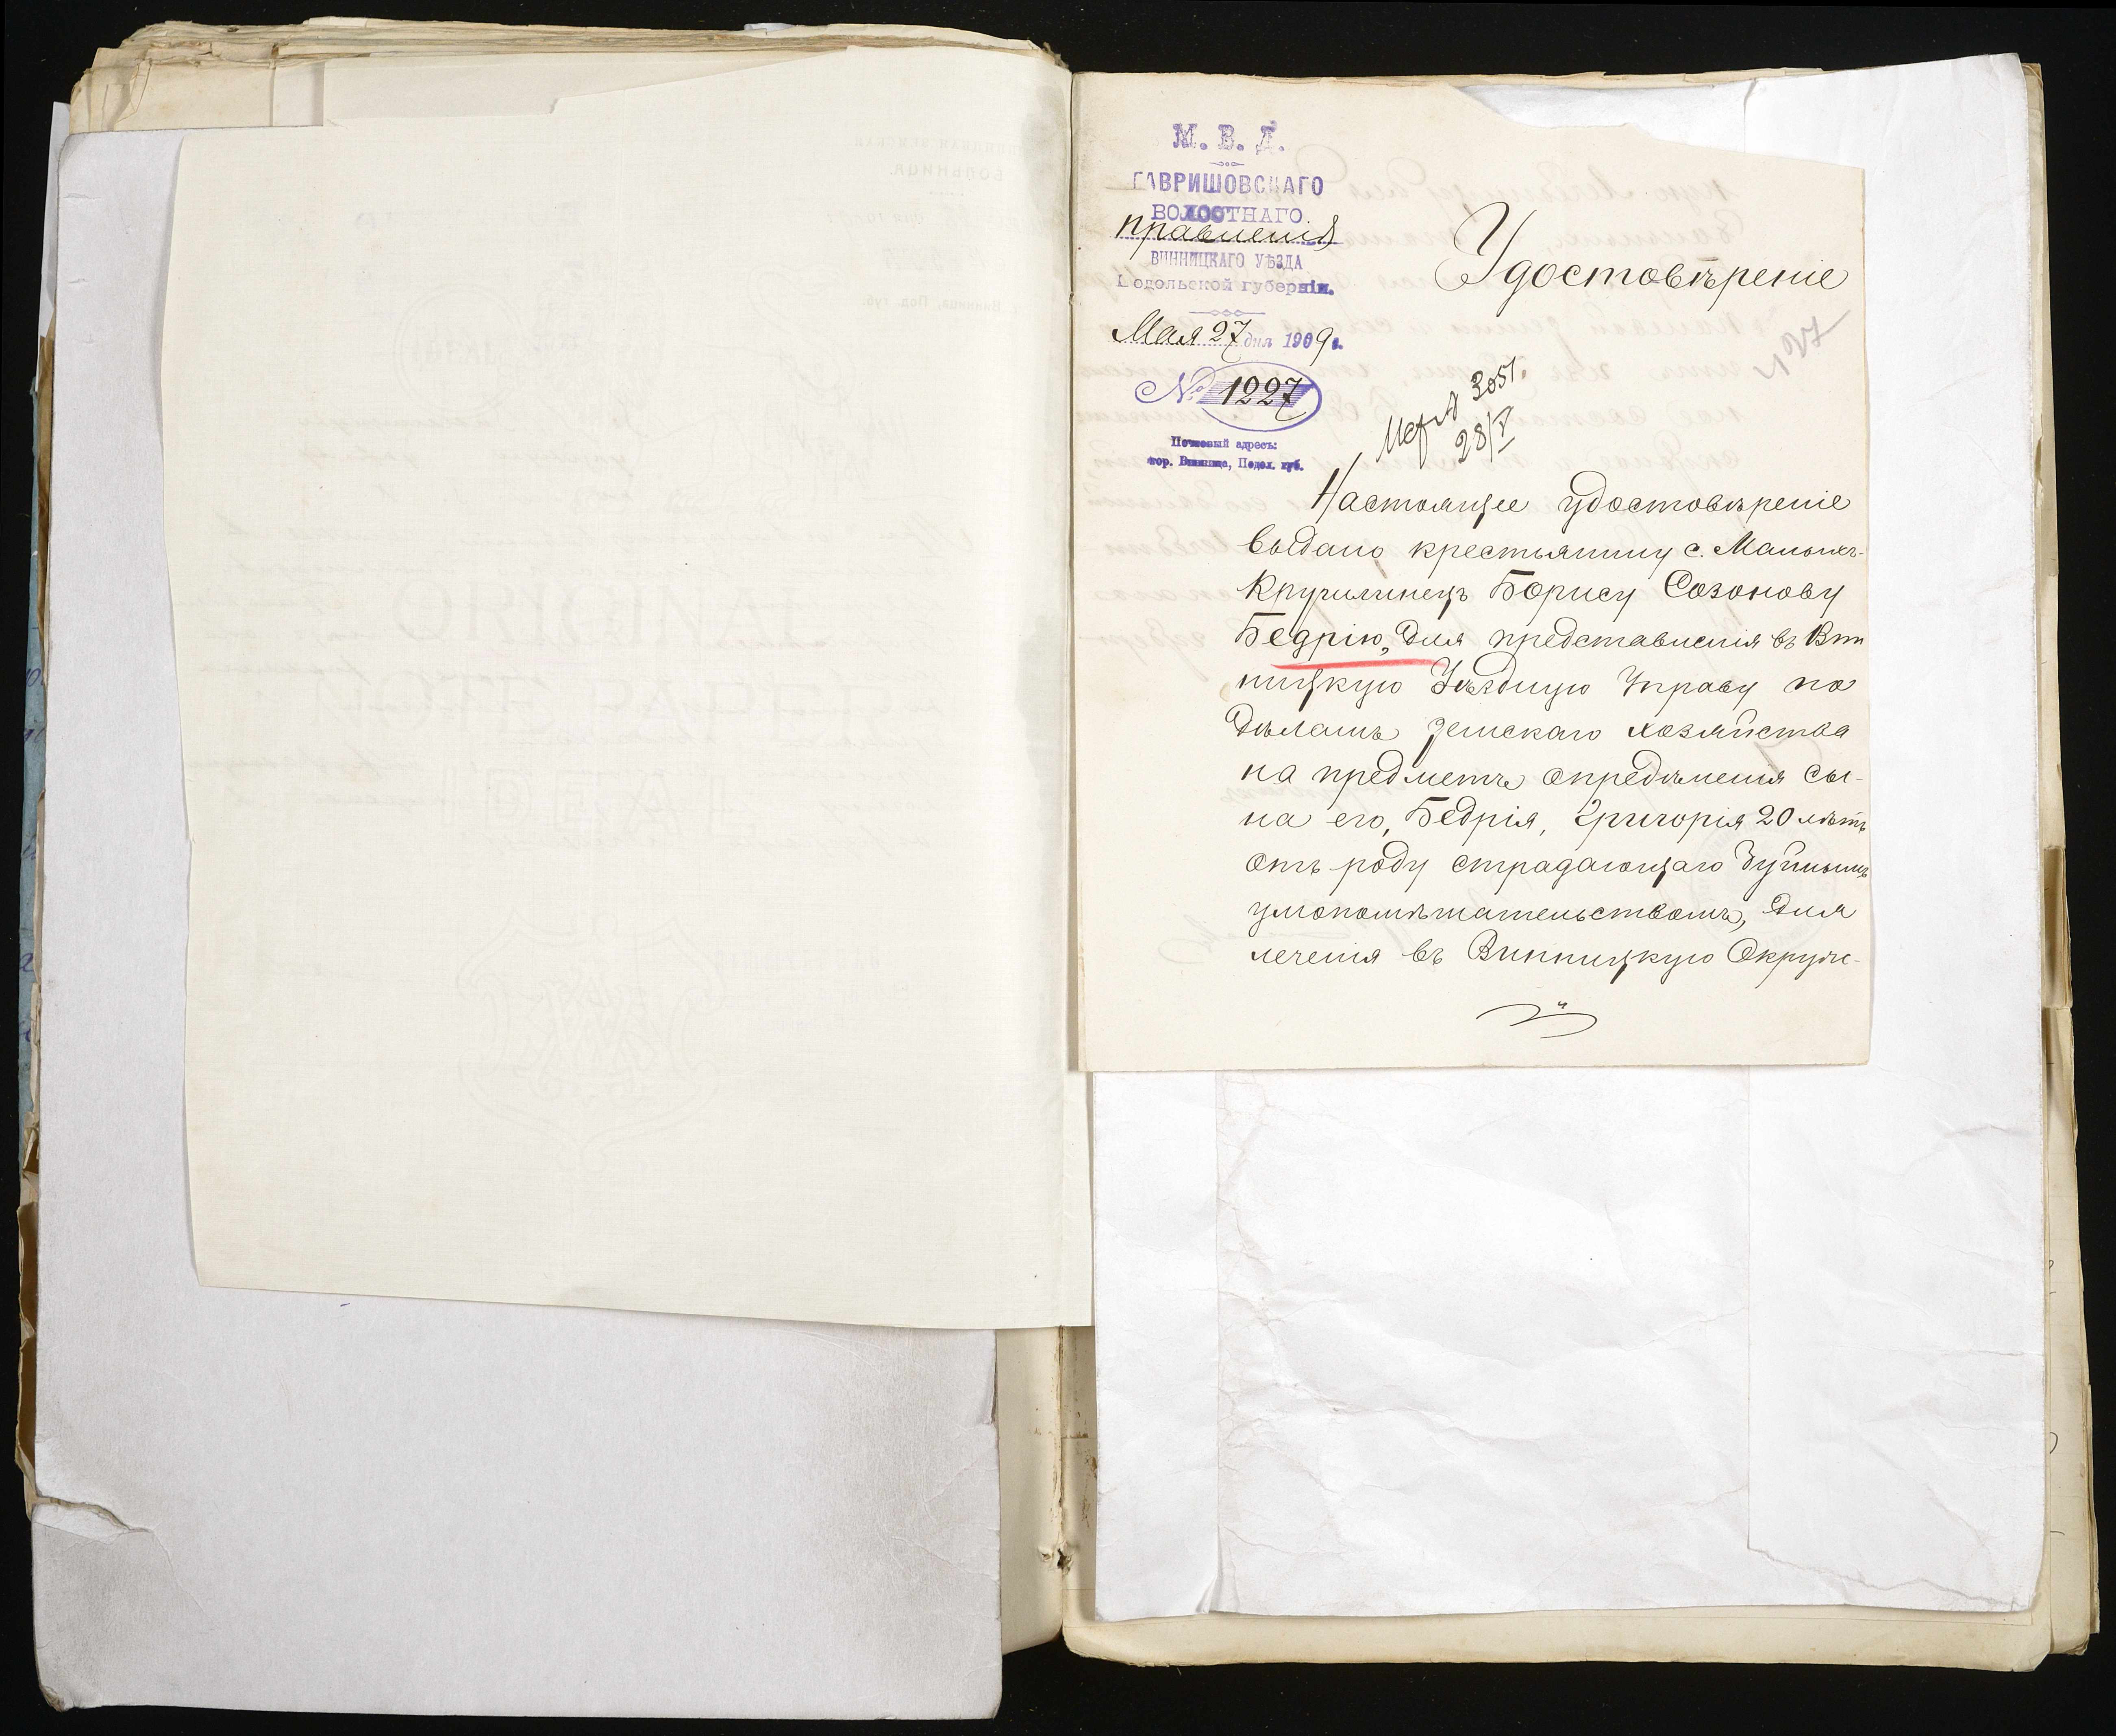 М. В. Д.
ГАВРИШОВСКАГО
ВОЛОСТНАГО
правленія
ВИННИЦКАГО УѢЗДА
Подольской губерніи.
Мая 27 дня 1909 г.
№ 1227
Почтовый адресъ:
гор. Винница, Подол. губ.
Удостовѣреніе
127
3051
28/V
Настоящее удостовѣреніе
выдано крестьянину с. Малыхъ-
Крушлинецъ Борису Созонову
Бедрію, для представленія въ Вин
ницкую Уѣздную Управу по
дѣламъ земскаго хозяйства
на предметъ опредѣленія сы-
на его, Бедрія, Григорія 20 лѣтъ
отъ роду страдающаго буйнымъ
умопомѣшательствомъ, для
леченія въ Винницкую Окруж-